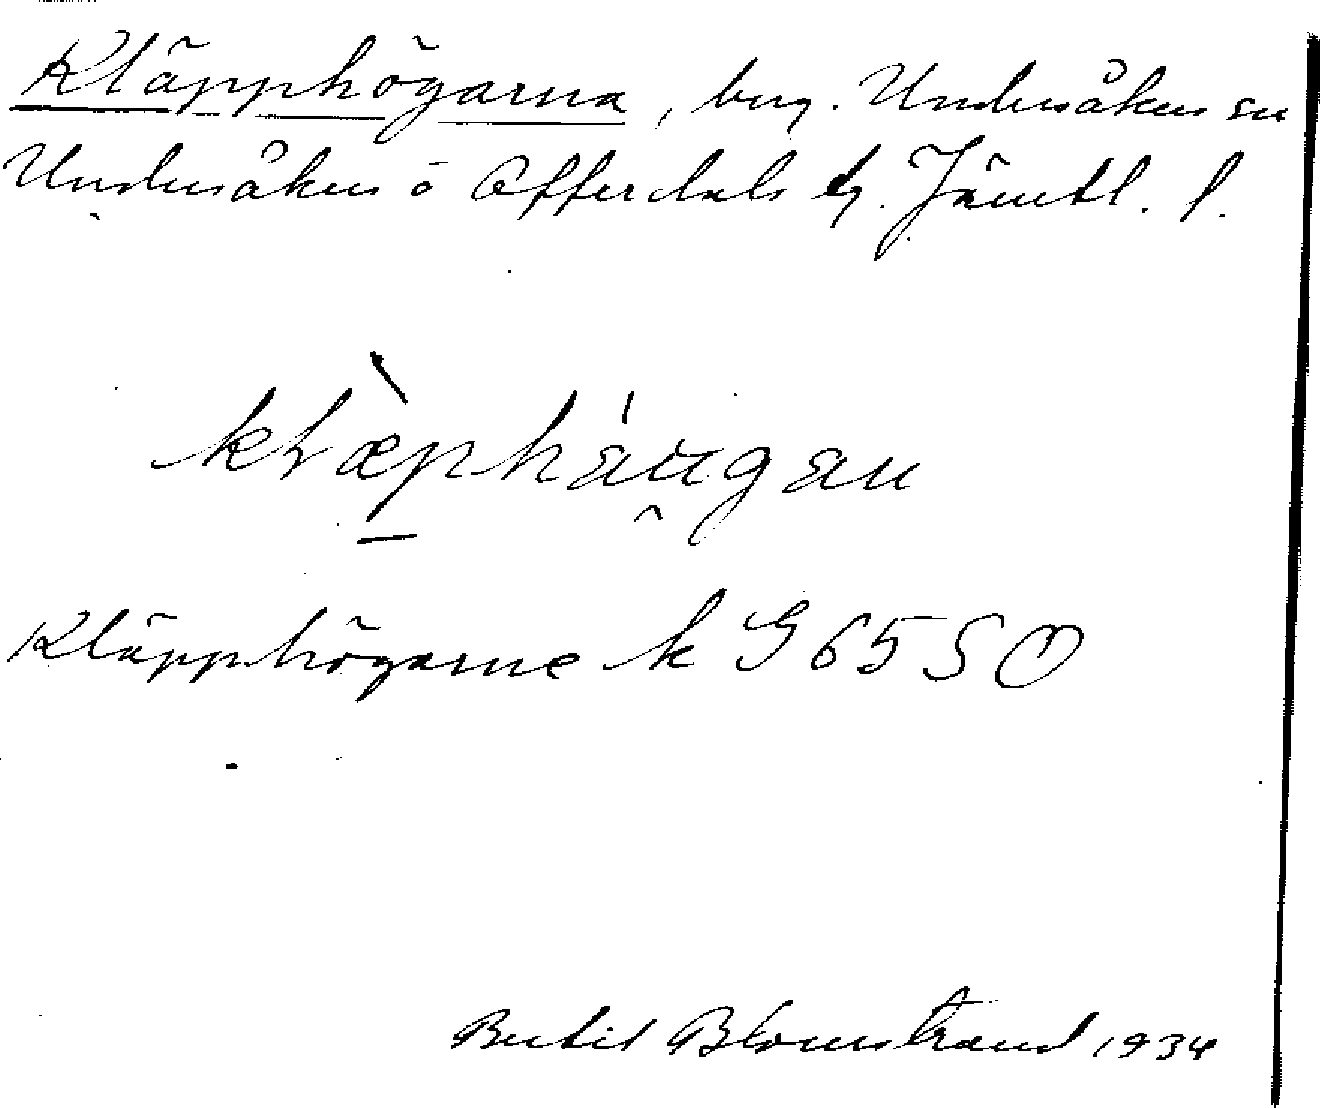 Kläpphögarna, berg. Undersåkers sn
Undersåkers o Offerdals tg. Jämtl. l.
klæpháu̯gan
Kläpphögarne k G 65 SO
Bertil Blomstrand 1934